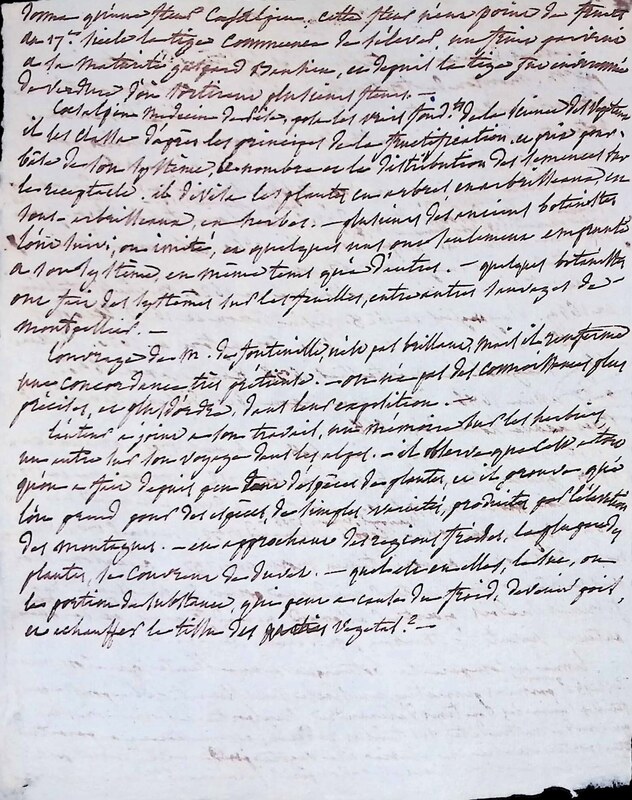 donna qu'une fleur Casalpin. cette fleur n'eut point de fruits
au 17e. siecle la tige commence de s'élever, un fruit parvient
a sa maturité gaspard Bauhin, et depuis la tige fut
de verdure d'où sortirent plusieurs fleurs. —
Casalpin medecin de pise, pose les vrais fond.ts de la science des
il les classa d'après les principes de la fructification. et prit pour
bâse de son systême, le nombre et la distribution des semences sur
le receptacle. il divisa les plantes en arbres en arbrisseaux, en
sous-arbrisseaux, en herbes. — plusieurs des anciens botanistes
l'ont suivi, ou imité, et quelques uns ont seulement emprunté
a son systême en même tems qu'à d'autres. — quelques botanistes
ont fait des systêmes sur les feuilles, entre autres Sauvages de
montpellier. —
L'ouvrage de m. de fontenille n'est pas brillant, mais il renferme
une concordance très prétieuse. — on n'a pas des connoissances plus
précises, et plus d'ordre, dans leur exposition. —
L'auteur a joint a son travail, un memoire sur les herbiers
un autre sur son voyage dans les alpes. — il observe que
qu'on a fait depuis peu d'espèces de plantes, et il prouve que
l'on prend pour des espèces, de simples variétés, produites par l'élévation
des montagnes. — en approchant des regions froides, la plupart des
plantes, se couvrent de duvet. — quel est en elles, le suc, ou
la portion de substance, qui peut a cause du froid, devenir poil,
et echauffer le tissu des parties végétal? —